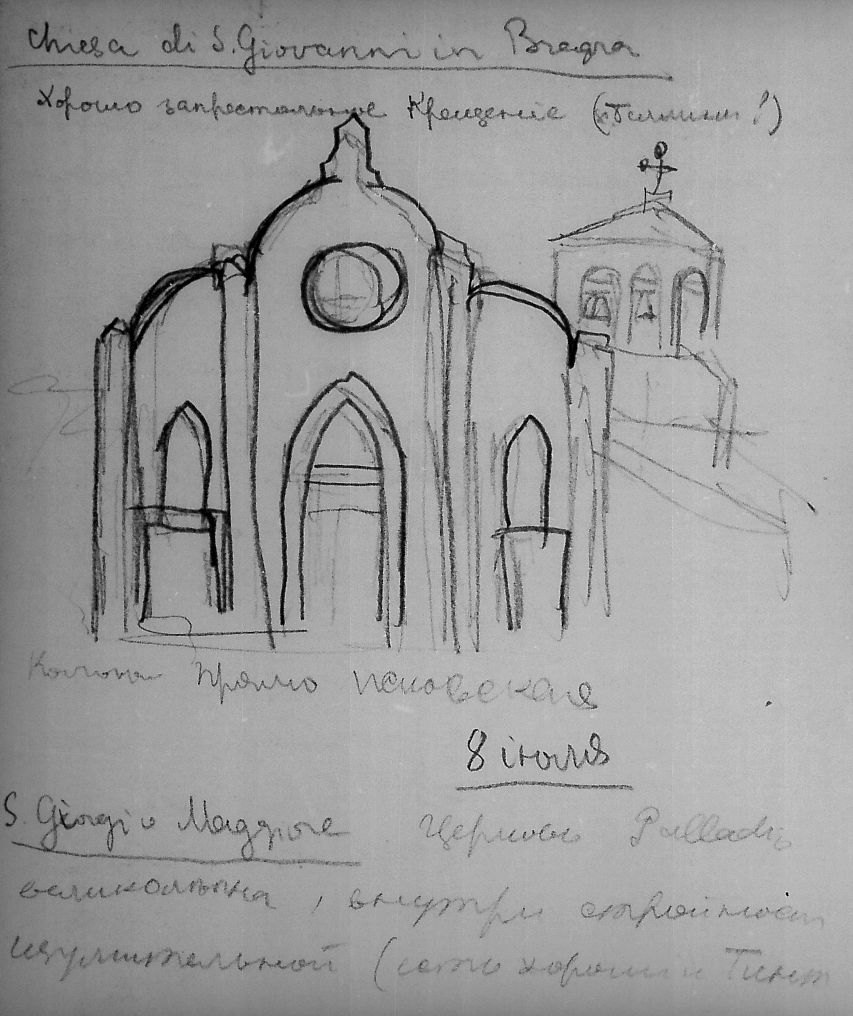 Chiesa di S. Giovanni in Bragra
Хорошо запрестольное Крещеніе (Беллини!)
прямо псковская
8 іюля
S. Giorgio Maggiore Церковь Palladio
великолепна, внутри стройности
изумительной (есть хорошіе Тинт